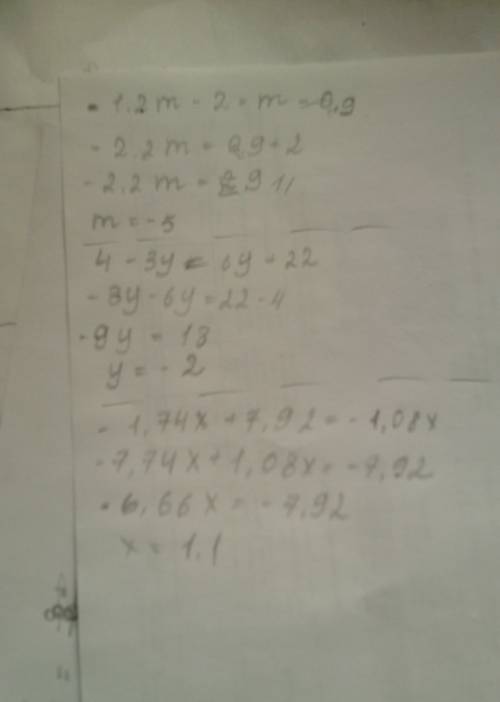 - 1.2m - 2 - m = 0,9
- 2.2m = 0,9 + 2
- 2.2m =
m = -5
4 - 3y = 6y + 22
- 3y - 6y = 22 - 4
- 9y = 18
y = - 2
- 1,74x + 7,92 = - 1,08x
- 7,74x + 1,08x = - 7,92
- 6,66x = - 7,92
x = 1,1